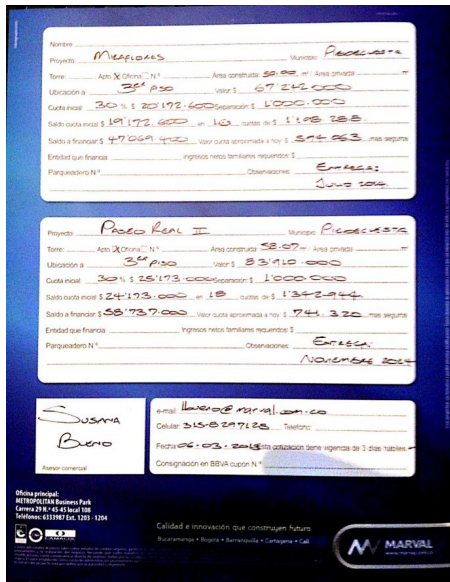 Nombre:
Proyecto MIRAFLORES Municipio PIEDECUESTA
Torre: Apto X Oficina N.º Área construida m² Área privada m²
Ubicación a 3er PISO Valor $ 67'242.000
Cuota inicial 30 % $ 20'172.600 Separación $ 1'000.000
Saldo cuota inicial $ 19'172.600 en 16 cuotas de $ 1'198.288
Saldo a financiar $ 47'069.400 Valor cuota aproximada a hoy $ 594.063 más seguros
Entidad que financia Ingresos netos familiares requeridos $
Parqueadero N.º Observaciones: ENTREGA:
JULIO 2014
Proyecto PASEO REAL II Municipio PIEDECUESTA
Torre: Apto X Oficina N.º Área construida 58.07 m² Área privada m²
Ubicación a 3er PISO Valor $ 83'910.000
Cuota inicial 30 % $ 25'173.000 Separación $ 1'000.000
Saldo cuota inicial $ 24'173.000 en 18 cuotas de $ 1'342.944
Saldo a financiar $ 58'737.000 Valor cuota aproximada a hoy $ 741.320 más seguros
Entidad que financia Ingresos netos familiares requeridos $
Parqueadero N.º Observaciones: ENTREGA:
NOVIEMBRE 2014
SUSANA
BUENO
Asesor comercial
e-mail: @marval.com.co
Celular: 315-8297128 Teléfono:
Fecha 06-03- Esta cotización tiene vigencia de 3 días hábiles
Consignación en BBVA cupón N.º
Oficina principal:
METROPOLITAN Business Park
Carrera 29 N.º 45-45 local 108
Teléfonos: 6333987 Ext. 1203 - 1204
Calidad e innovación que construyen futuro
Bucaramanga • Bogotá • Barranquilla • Cartagena • Cali
MARVAL
www.marval.com.co